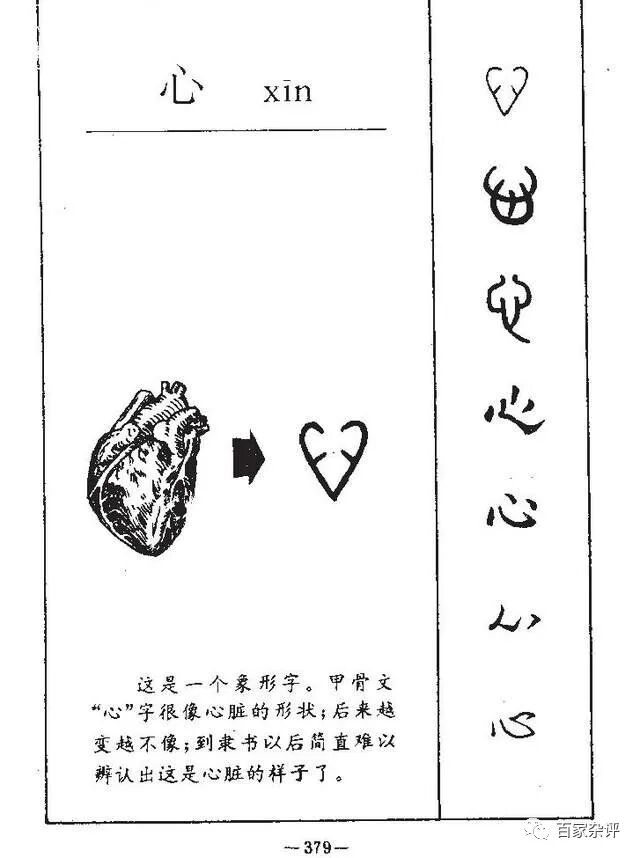 心 xīn
这是一个象形字。甲骨文
“心”字很像心脏的形状；后来越
变越不像；到隶书以后简直难以
辨认出这是心脏的样子了。
心
心
心
心
心
心
心
—379—
百家杂评